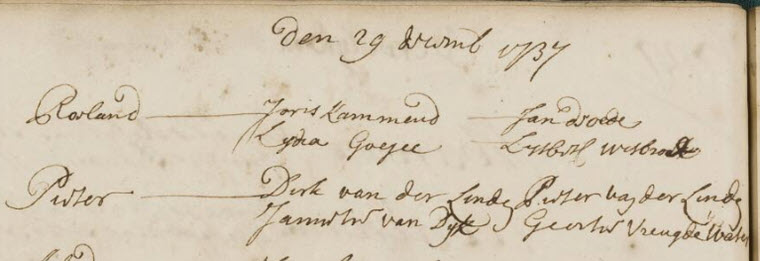 den 29 decemb 1737
Roeland Joris Kammend Jan
Lydia Goejee Lysbeth
Pieter Dirk van der Linde Pieter van der Linde
Jannetie van Dyk Geertie Vreugdewater